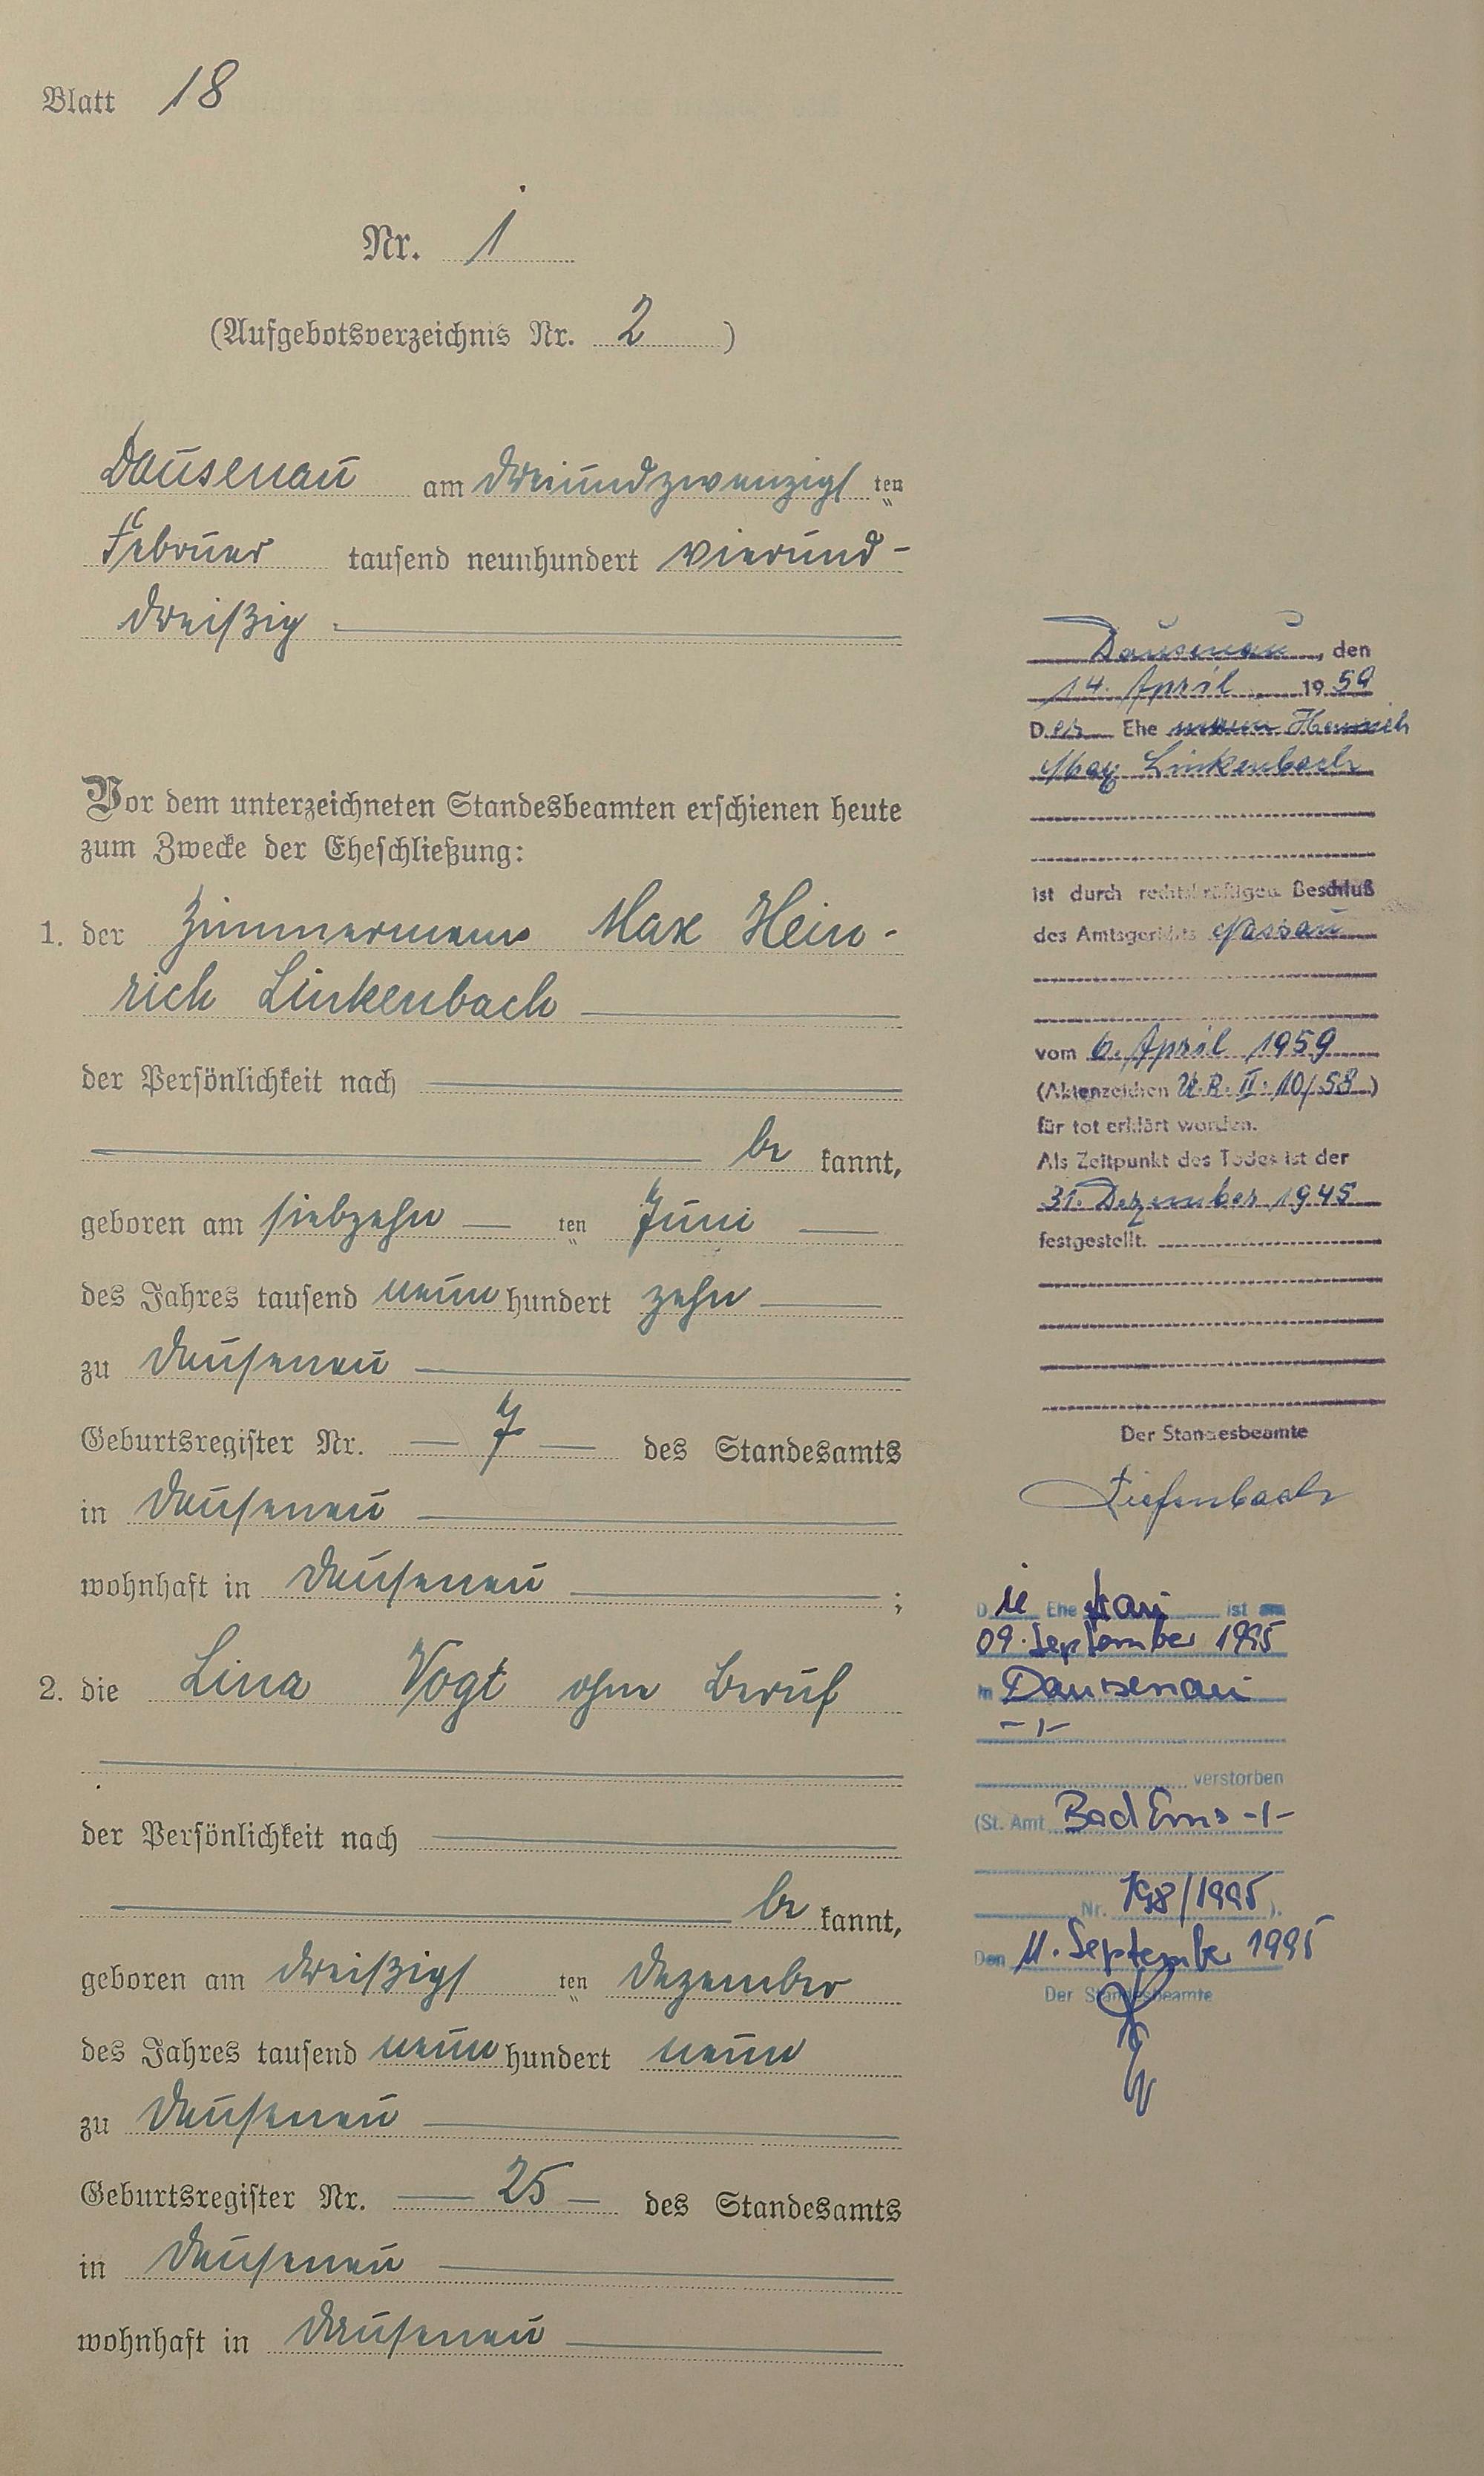 Blatt 18
Nr. 1
(Aufgebotsverzeichnis Nr. 2 )
Dausenau am dreiundzwanzigsten
Februar tausend neunhundert vierund-
dreißig
Vor dem unterzeichneten Standesbeamten erschienen heute
zum Zwecke der Eheschließung:
1. der Zimmermann Max Hein-
rich Linkenbach
der Persönlichkeit nach
be kannt,
geboren am siebzehn ten Juni
des Jahres tausend neun hundert zehn
zu Dausenau
Geburtsregister Nr. 7 des Standesamts
in Dausenau
wohnhaft in Dausenau ;
2. die Lina Vogt ohne Beruf
der Persönlichkeit nach
be kannt,
geboren am dreißigs ten Dezember
des Jahres tausend neun hundert neun
zu Dausenau
Geburtsregister Nr. 25 des Standesamts
in Dausenau
wohnhaft in Dausenau
Dausenau, den
14. April 1959
Der Ehe mann Heinrich
Max Linkenbach
ist durch rechtskräftigen Beschluß
des Amtsgerichts Nassau
vom 6. April 1959
(Aktenzeichen U.R. II. 10/58)
für tot erklärt worden.
Als Zeitpunkt des Todes ist der
31. Dezember 1945
festgestellt.
Der Standesbeamte
Tiefenbach
Die Ehefrau ist am
09. September 1995
in Dausenau
-/-
verstorben
(St. Amt Bad Ems -/-
Nr. 198/1995 ).
Den 11. September 1995
Der Standesbeamte